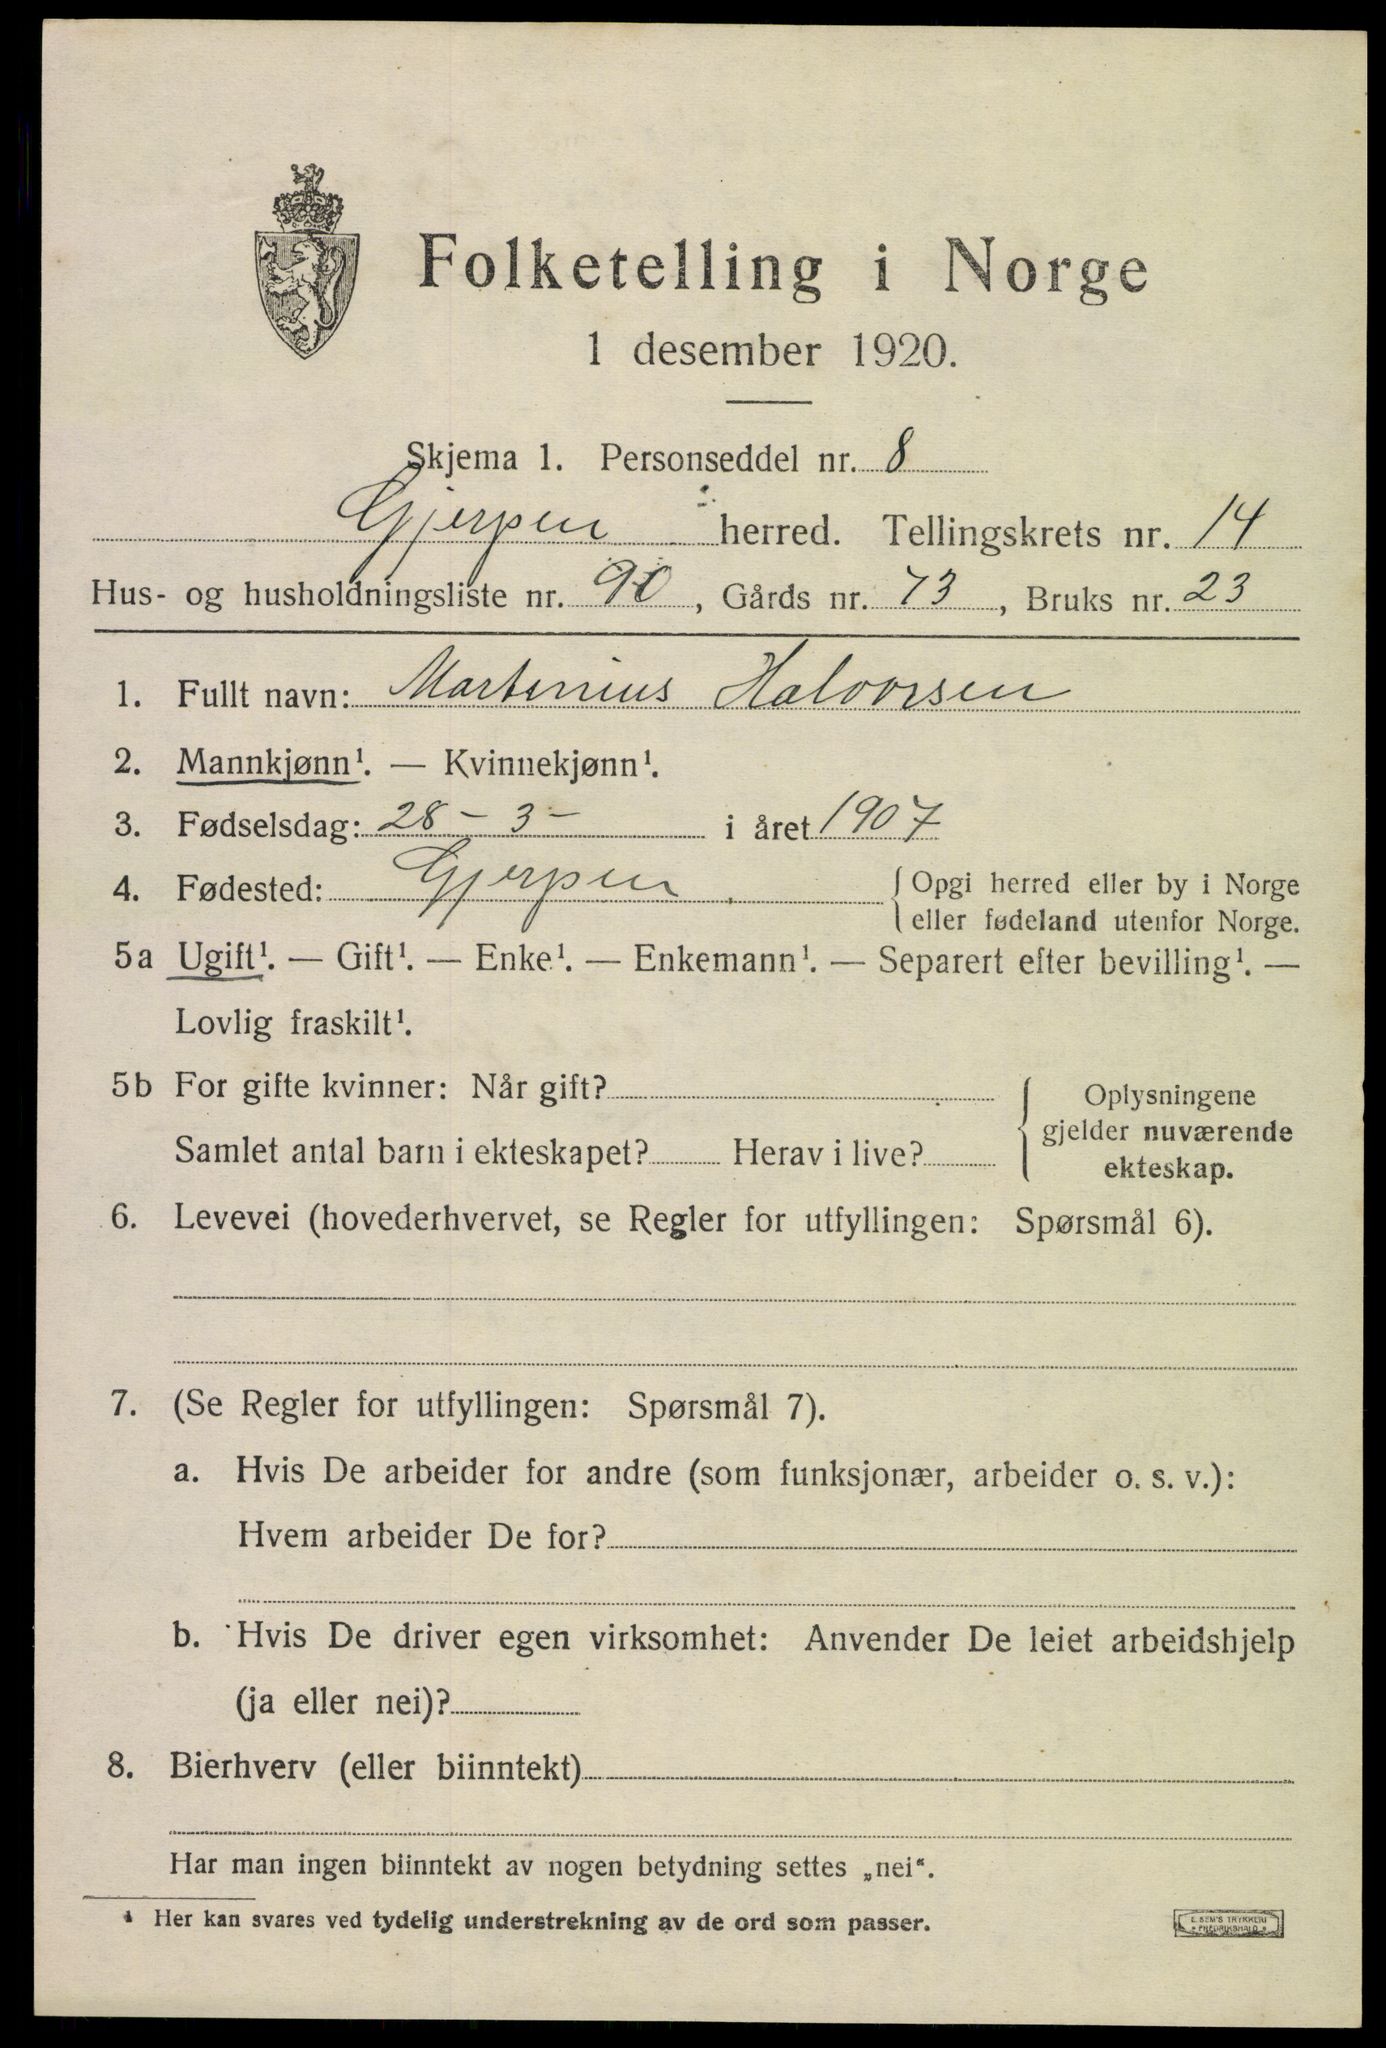 Folketelling i Norge
1 desember 1920.
Skjema 1. Personseddel nr. 8
Gjerpen herred. Tellingskrets nr. 14
Hus- og husholdningsliste nr. 90, Gårds nr. 73, Bruks nr. 23
1. Fullt navn: Martinius Halvorsen
2. Mannkjønn¹. — Kvinnekjønn¹.
3. Fødselsdag: 28 - 3 - i året 1907
4. Fødested: Gjerpen { Opgi herred eller by i Norge
eller fødeland utenfor Norge.
5a Ugift¹. — Gift¹. — Enke¹. — Enkemann¹. — Separert efter bevilling¹. —
Lovlig fraskilt¹.
5b For gifte kvinner: Når gift?
Samlet antal barn i ekteskapet? Herav i live?
{ Oplysningene
gjelder nuværende
ekteskap.
6. Levevei (hovederhvervet, se Regler for utfyllingen: Spørsmål 6).
7. (Se Regler for utfyllingen: Spørsmål 7).
a. Hvis De arbeider for andre (som funksjonær, arbeider o. s. v.):
Hvem arbeider De for?
b. Hvis De driver egen virksomhet: Anvender De leiet arbeidshjelp
(ja eller nei)?
8. Bierhverv (eller biinntekt)
Har man ingen biinntekt av nogen betydning settes „nei“.
¹ Her kan svares ved tydelig understrekning av de ord som passer.
E. SEM'S TRYKKERI
FREDRIKSHALD